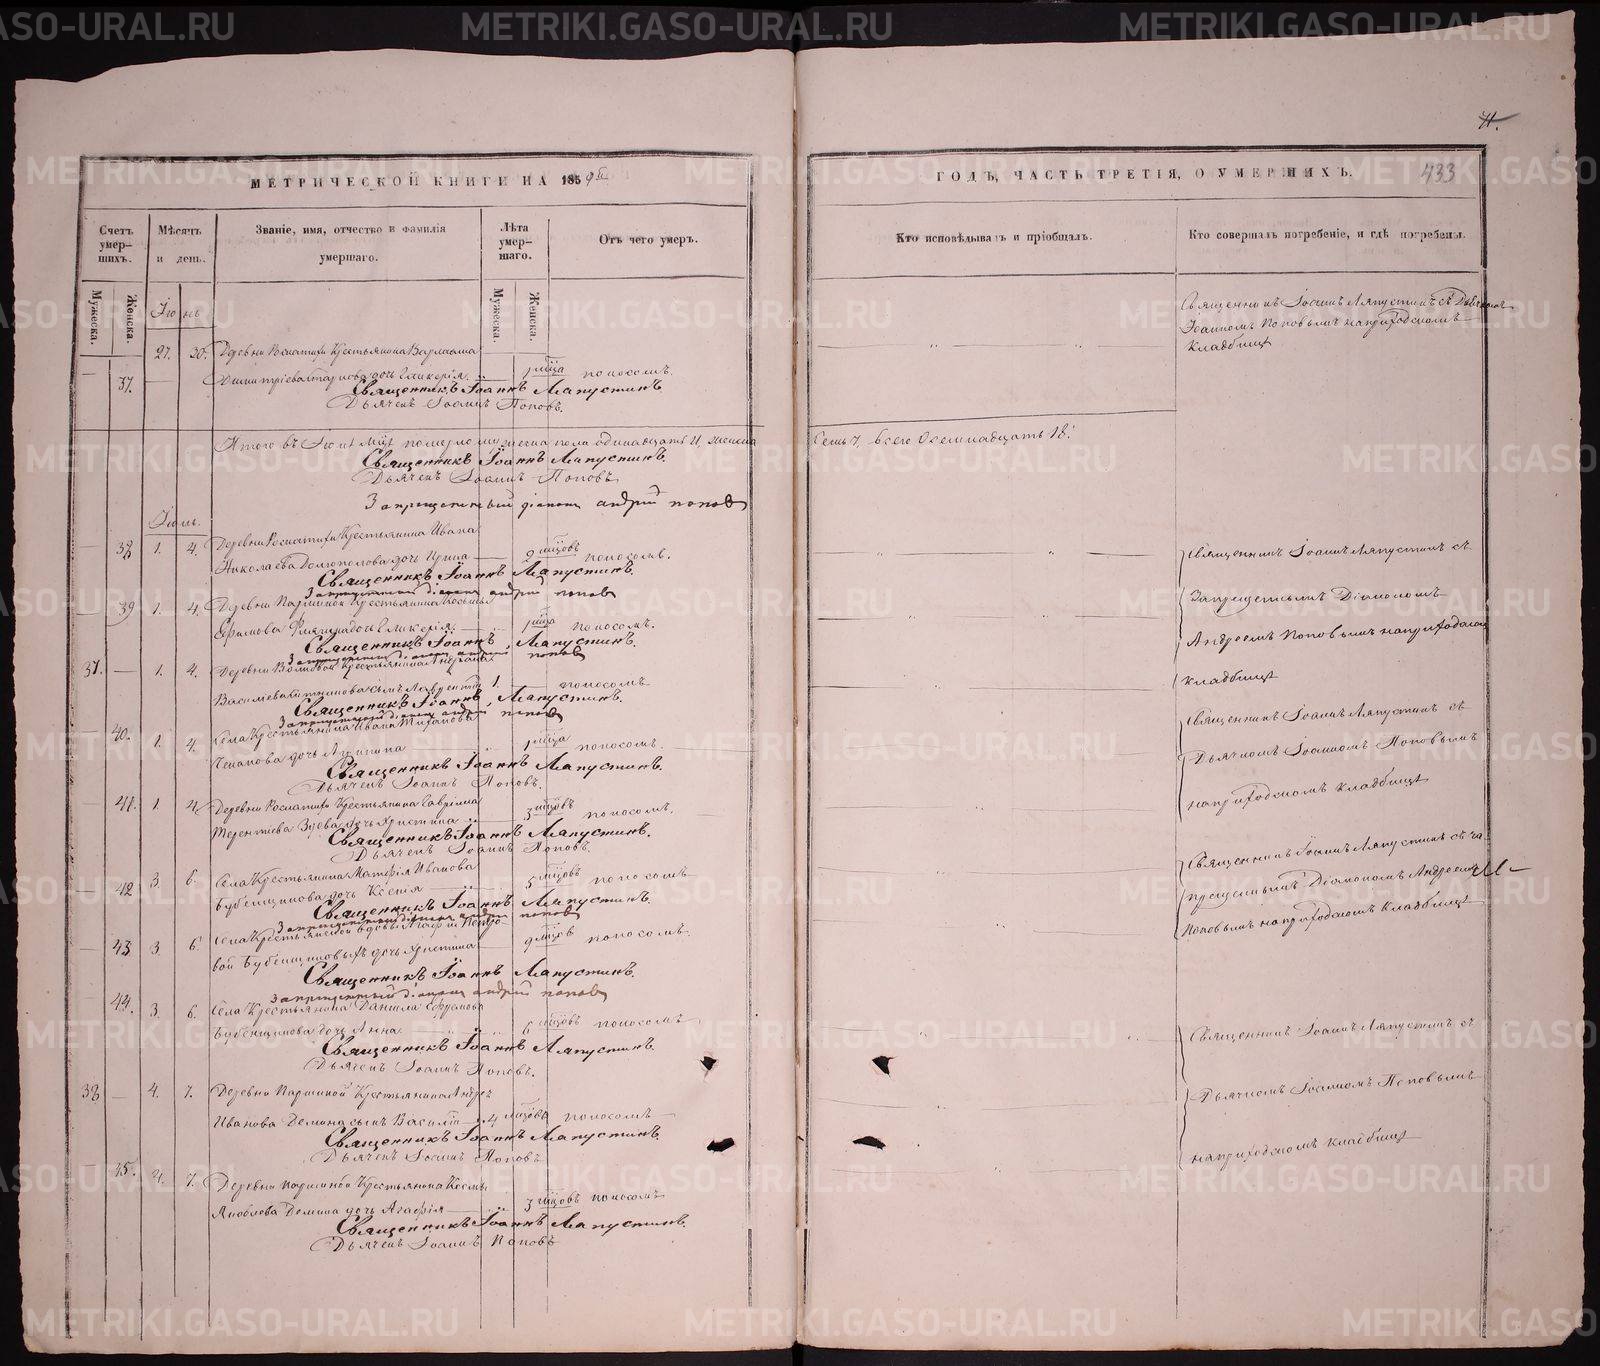 МЕТРИЧЕСКОЙ КНИГИ НА 1859й
Счетъ умер-шихъ.
Мѣсяцъ и день.
Званіе, имя, отчество и фамилія умершаго.
Лѣта умер-шаго.
Отъ чего умеръ.
Мужеска.
Женска.
Мужеска.
Женска.
Іюнь
27. 30. Деревни Крестьянина Варлаама
37. дочь Гликерія 1 мѣсца поносомъ.
Священникъ Іоаннъ Ляпустинъ.
Дьячекъ Іоаннъ Поповъ.
Итого въ Іюнѣ померло мужеска пола одинадцать 11, женска
Священникъ Іоаннъ Ляпустинъ.
Дьячекъ Іоаннъ Поповъ
Запрещенный діаконъ андрей поповъ
Іюль.
38 1. 4. Деревни Крестьянина Ивана
Николаева дочь Ирина 9 мѣсцовъ поносомъ.
Священникъ Іоаннъ Ляпустинъ.
Запрещенный діаконъ андрей поповъ
39 1. 4. Деревни Крестьянина
дочь Гликерія. 1 мѣсца поносомъ.
Священникъ Іоаннъ Ляпустинъ.
Запрещенный діаконъ андрей поповъ
37. 1. 4. Деревни Крестьянина
Васильева сынъ Лаврентій 1. поносомъ
Священникъ Іоаннъ Ляпустинъ.
Запрещенный діаконъ андрей поповъ
40. 1. 4. Села Крестьянина Ивана
дочь 1 мѣсца поносомъ.
Священникъ Іоаннъ Ляпустинъ.
Дьячекъ Іоаннъ Поповъ.
41. 1. 4. Деревни Крестьянина Гавріила
Терентіева Зуева дочь Христина 3 мѣсцовъ поносомъ.
Священникъ Іоаннъ Ляпустинъ.
Дьячекъ Іоаннъ Поповъ.
42 3. 6. Села Крестьянина Матфія Иванова
Бубенщикова дочь Ксенія 5 мѣсцовъ поносомъ
Священникъ Іоаннъ Ляпустинъ.
Запрещенный діаконъ андрей поповъ
43 3. 6. Села Крестьянской вдовы Агафіи Петро-
вой Бубенщиковыхъ дочь Христина 9 мѣсцовъ поносомъ.
Священникъ Іоаннъ Ляпустинъ.
Запрещенный діаконъ андрей поповъ
44. 3. 6. Села Крестьянина Даніила Ефремова
Бубенщикова дочь Анна 6 мѣсцовъ поносомъ
Священникъ Іоаннъ Ляпустинъ.
Дьячекъ Іоаннъ Поповъ.
38 4. 7. Деревни Паршиной Крестьянина Андрея
Иванова Демина сынъ Василій 4 мѣсцовъ поносомъ
Священникъ Іоаннъ Ляпустинъ.
Дьячекъ Іоаннъ Поповъ
45. 4. 7. Деревни Паршиной Крестьянина Космы
Яковлева Демина дочь Агафія 3 мѣсцовъ поносомъ
Священникъ Іоаннъ Ляпустинъ.
Дьячекъ Іоаннъ Поповъ
433
ГОДЪ, ЧАСТЬ ТРЕТІЯ, О УМЕРШИХЪ.
Кто исповѣдывалъ и пріобщалъ.
Кто совершалъ погребеніе, и гдѣ погребены.
Священникъ Іоаннъ Ляпустинъ съ Дьячкомъ
Іоанномъ Поповымъ на приходскомъ
кладбищѣ
семь 7, всего Осемнадцать 18.
Священникъ Іоаннъ Ляпустинъ съ
Запрещеннымъ Діакономъ
Андреемъ Поповымъ на приходскомъ
кладбищѣ
Священникъ Іоаннъ Ляпустинъ съ
Дьячкомъ Іоанномъ Поповымъ
на приходскомъ кладбищѣ
Священникъ Іоаннъ Ляпустинъ съ за-
прещеннымъ Діакономъ Андреемъ
Поповымъ на приходскомъ кладбищѣ
Священникъ Іоаннъ Ляпустинъ съ
Дьячкомъ Іоанномъ Поповымъ
на приходскомъ кладбищѣ
METRIKI.GASO-URAL.RU